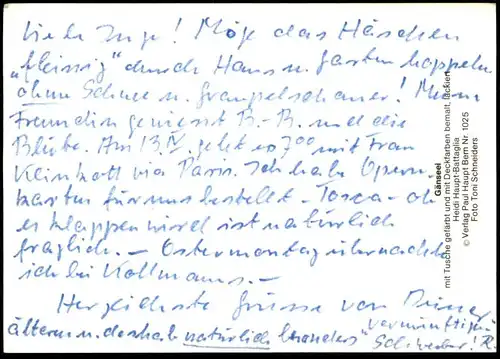 Liebe Inge! Möge das Häschen
"fleissig" durch Haus u. Garten hoppeln
ohne Schnee u. Graupelschauer! Meine
Freundin geniesst B.-B. und die
Blüte. Am 13.IV. geht es 7⁰⁰ mit Frau
via Paris. Ich habe Opern-
karten für uns bestellt - Tosca - ob
es klappen wird ist natürlich
fraglich. - Ostermontag übernachte
ich bei Kollmanns. -
Herzlichste Grüsse von Deiner
älteren u. deshalb "natürlich besonders vernünftigen"
Schwester! R.
Gänseei
mit Tusche gefärbt und mit Deckfarben bemalt, lackiert
Heidi Haupt-Battaglia
© Verlag Paul Haupt Bern Nr. 1025
Foto Toni Schneiders